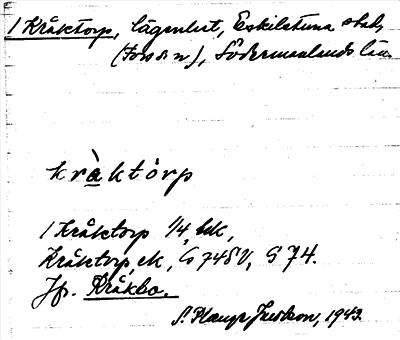 1 Kråktorp, lägenhet, Eskilstuna stad,
(Fors s n), Södermanlands län
kràktórp
1 Kråktorp 1/4 ek,
Kråktorp, ek, G 74SV, G 74.
Jfr. Kråkbo.
1943.